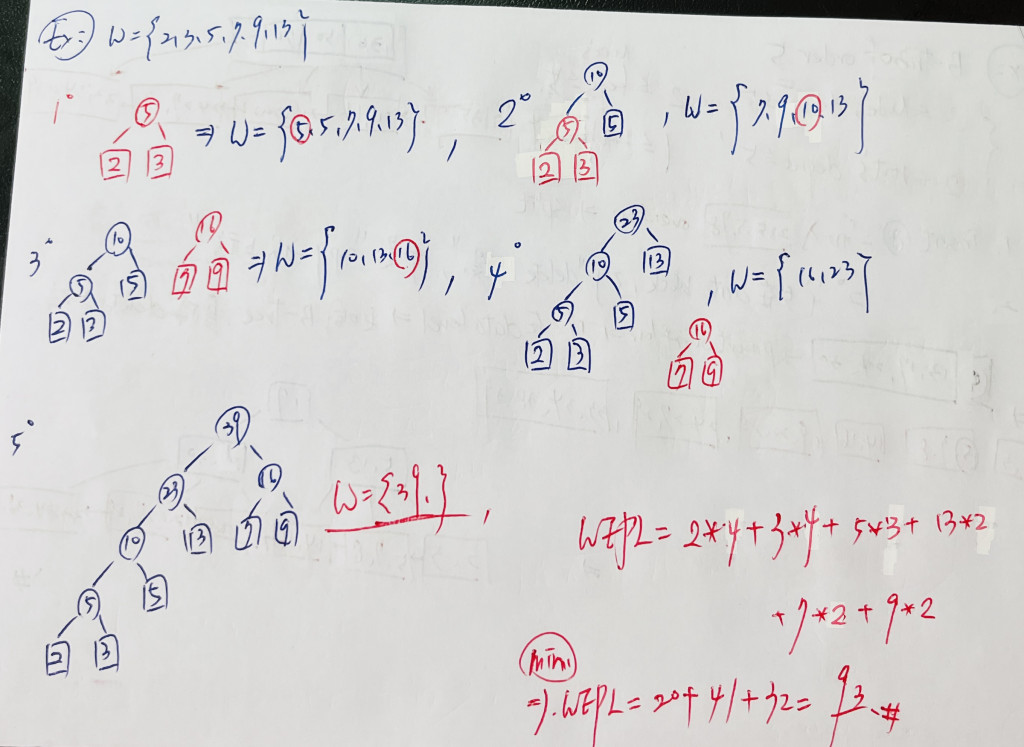 Ex: W={2,3,5,7,9,13}
1°
5
2 3
⇒ W={5,5,7,9,13},
2°
10
5 5
2 3
, W={7,9,10,13}
3°
10
5 5
2 3
16
7 9
⇒ W={10,13,16},
4°
23
10 13
5 5
2 3
16
7 9
, W={16,23}
5°
39
23 16
10 13 7 9
5 5
2 3
W={39.},
WEPL= 2*4+3*4+5*3+13*2
+7*2+9*2
min.
⇒. WEPL=20+41+32=93.#